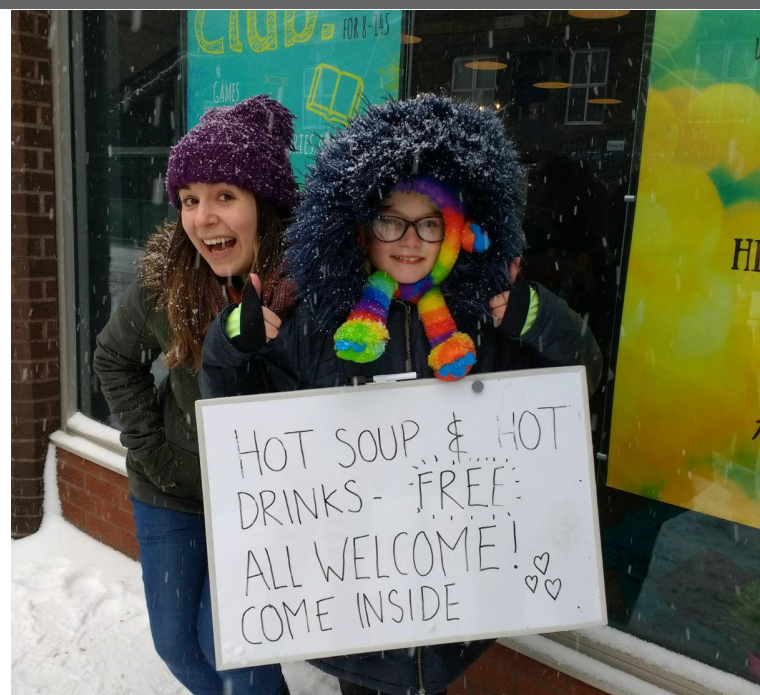 Club.
FOR 8-14S
GAMES
HOT SOUP & HOT
DRINKS - FREE
ALL WELCOME!
COME INSIDE